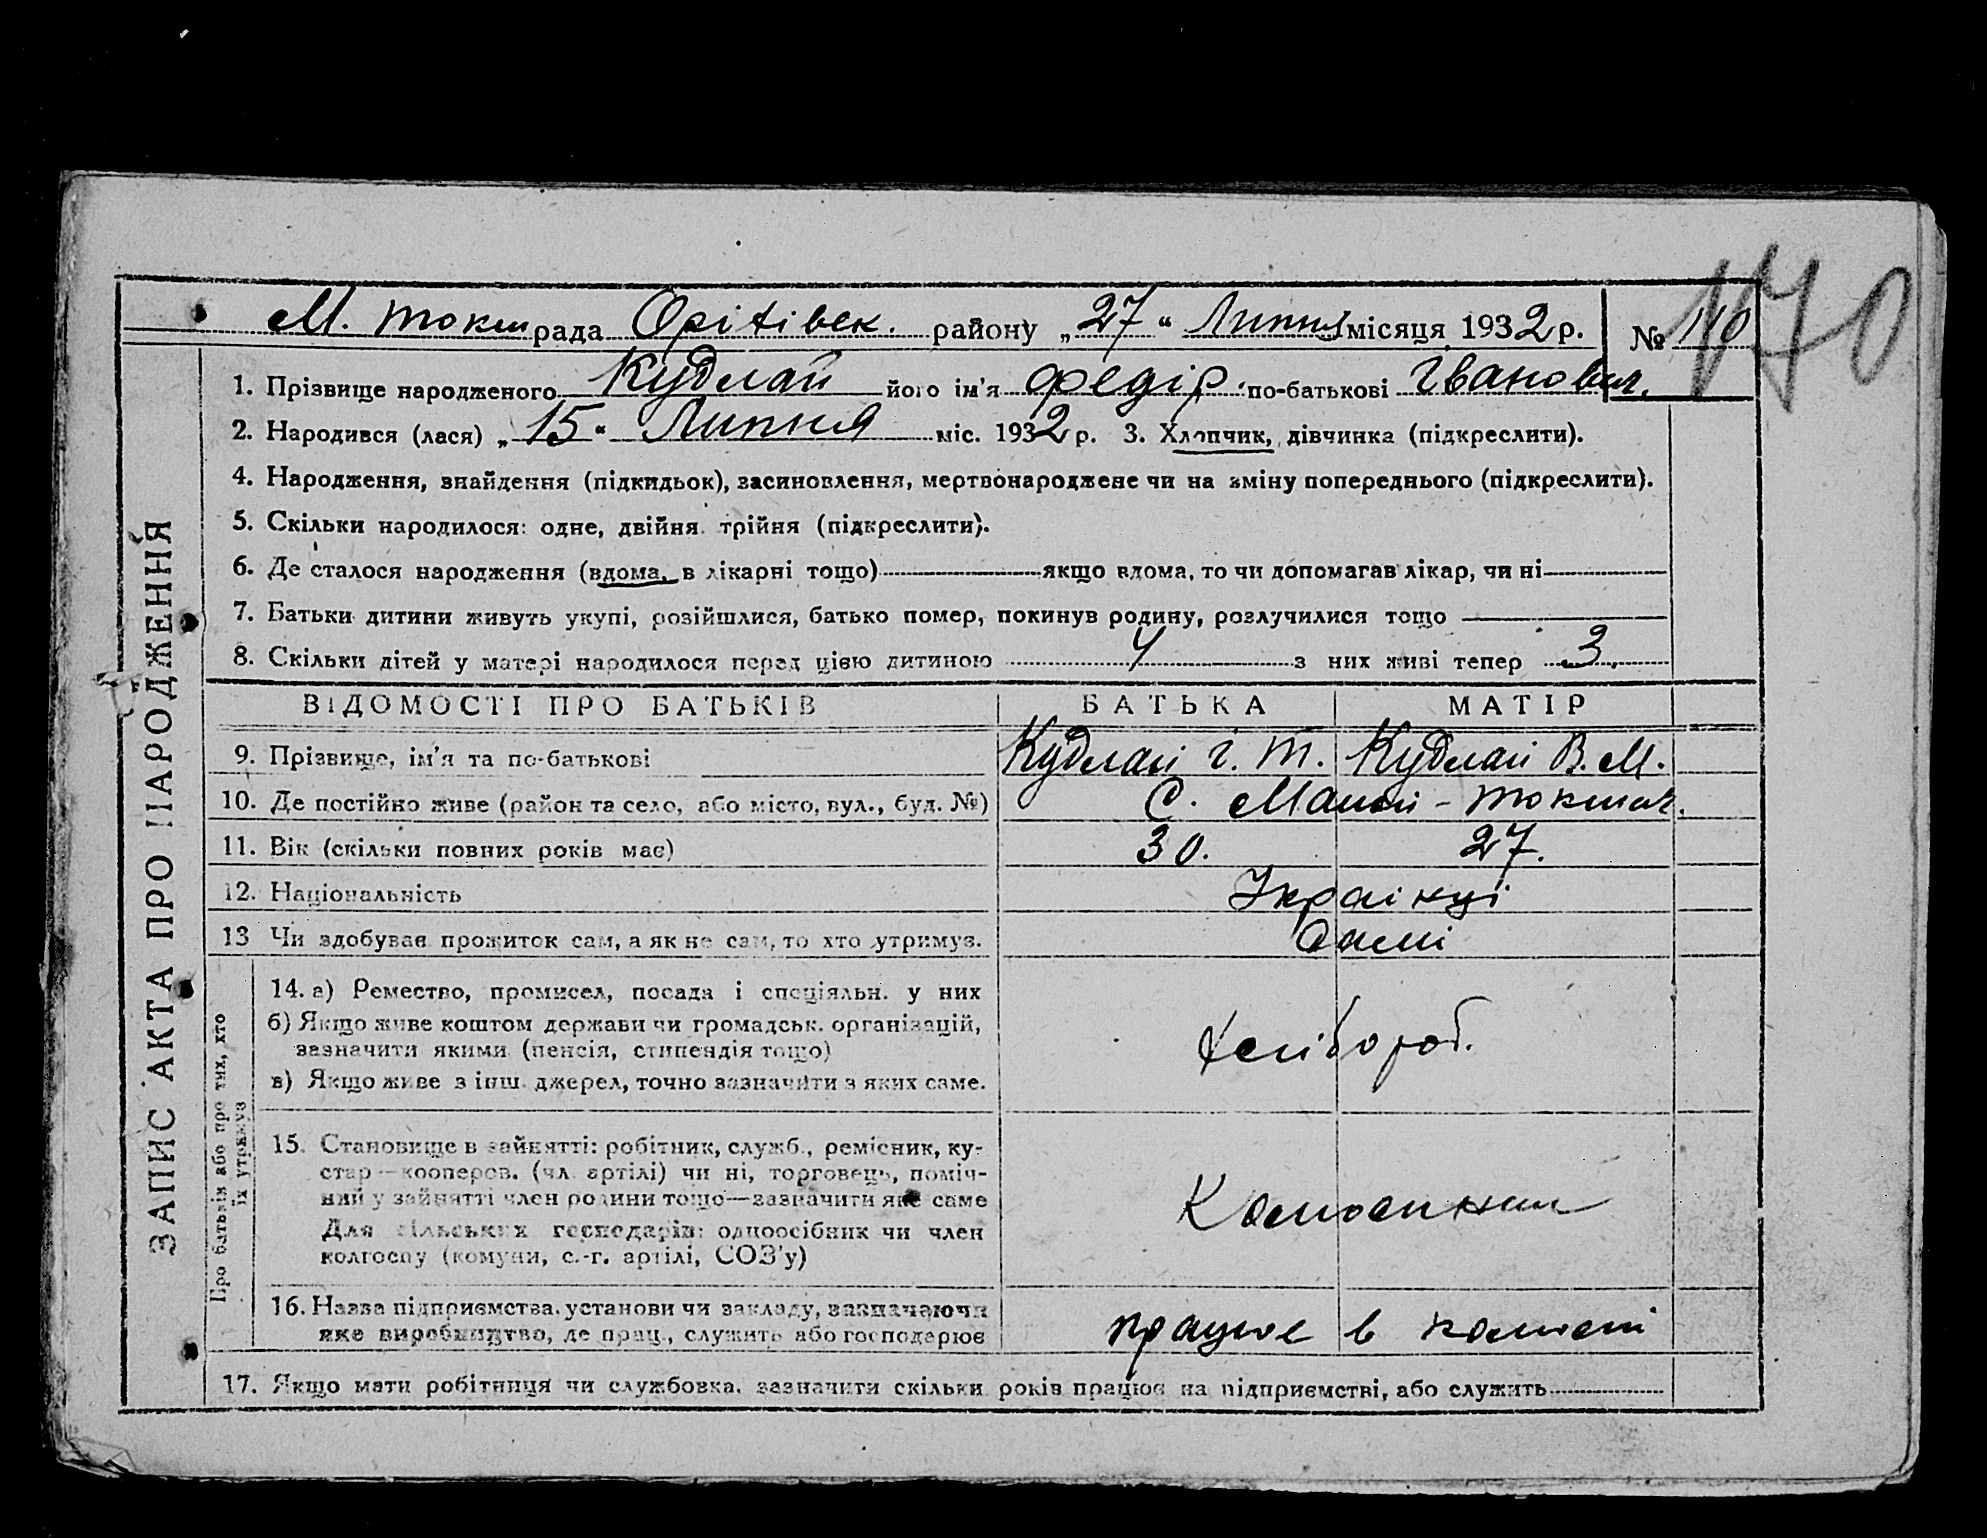 170
М. Токм рада Оріхівськ. району „27“ Липня місяця 1932 р. № 110
1. Прізвище народженого Кудлай його ім'я Федір по-батькові Іванович.
2. Народився (лася) „15“ Липня міс. 1932 р. 3. Хлопчик, дівчинка (підкреслити).
4. Народження, знайдення (підкидьок), засиновлення, мертвонароджене чи на зміну попереднього (підкреслити).
5. Скільки народилося: одне, двійня трійня (підкреслити).
6. Де сталося народження (вдома, в лікарні тощо) якщо вдома, то чи допомагав лікар, чи ні
7. Батьки дитини живуть укупі, розійшлися, батько помер, покинув родину, розлучилися тощо
8. Скільки дітей у матері народилося перед цією дитиною 4 з них живі тепер 3
ВІДОМОСТІ ПРО БАТЬКІВ БАТЬКА МАТІР
9. Прізвище, ім'я та по-батькові Кудлай І. Т. Кудлай В. М.
10. Де постійно живе (район та село, або місто, вул., буд. №) С. Малий-Токмак.
11. Вік (скільки повних років має) 30. 27.
12. Національність Українці
13 Чи здобував прожиток сам, а як не сам, то хто утримув. Самі
14. а) Ремество, промисел, посада і спеціяльн. у них
б) Якщо живе коштом держави чи громадськ. організацій,
зазначити якими (пенсія, стипендія тощо)
в) Якщо живе з інш. джерел, точно зазначити з яких саме.
Хлібороб.
15. Становище в зайнятті: робітник, служб., ремісник, ку-
стар—кооперов. (чл. артілі) чи ні, торговець, поміч-
ний у зайнятті член родини тощо—зазначити яке саме
Для сільських господарів: одноосібник чи член
колгоспу (комуни, с.-г. артілі, СОЗ'у)
16. Назва підприємства, установи чи закладу, зазначаючи
яке виробництво, де прац., служить або господарює
працює в
17. Якщо мати робітниця чи службовка, зазначити скільки років працює на підприємстві, або служить
ЗАПИС АКТА ПРО НАРОДЖЕННЯ
Про батьків або про тих, хто
їх утримує